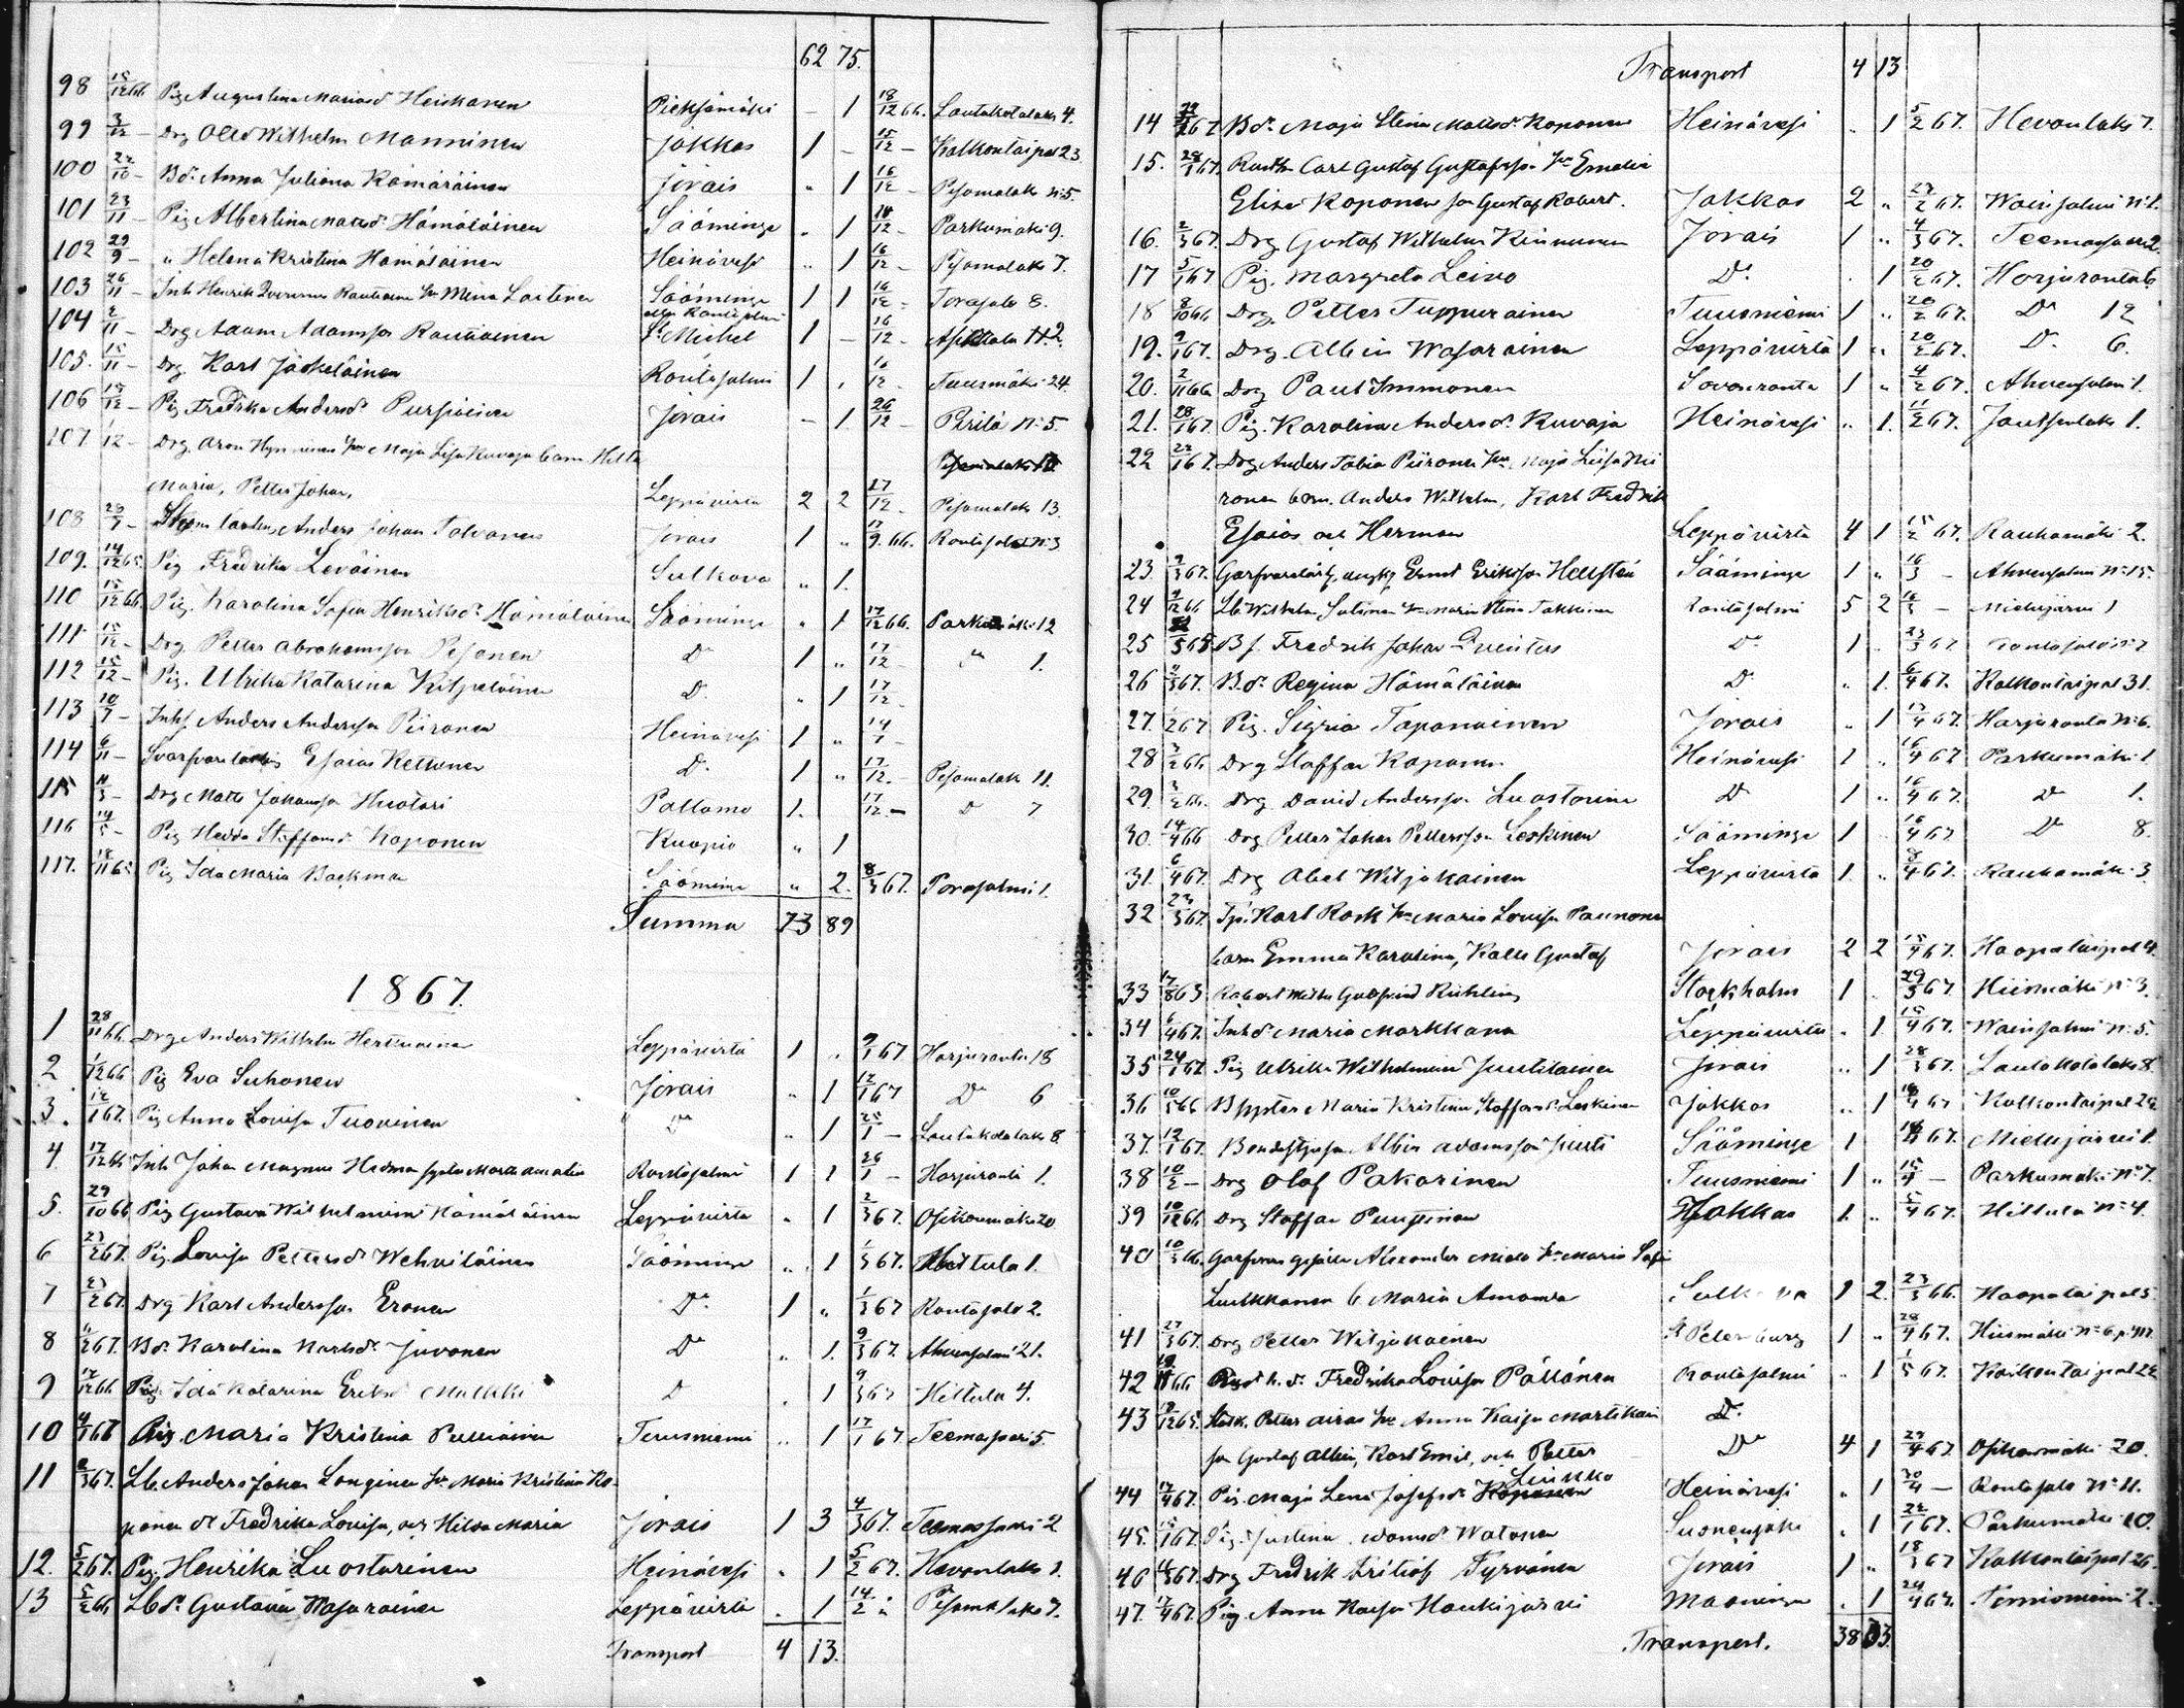 62 75.
98 15/12 66 Pig Augustina Mariasd. Heiskanen Pieksämäki - 1 18/12 66. Lautakotalaks 4.
99 3/12 - Drg Olli Wilhelm Manninen Jokkas 1 - 15/12 - Kolkontaipal 23.
100 22/10 - Bd. Anna Juliana Kämäräinen Jorais " 1 16/12 - Pesomalaks N:5.
101 23/11 - Pig Albertina Mattsd. Hämäläinen Sääminge " 1 18/12 - Parkumäki 9.
102 29/9 - " Helena Kristina Hämäläinen Heinävesi " 1 16/12 - Pesomalaks 7.
103 26/11 - Inh Henrik Rautiainen hu Mina Laitinen Sääminge 1 1 16/12 - Torasalo 8.
104 2/11 - Drg Adam Adamsson Rautiainen St. Michel 1 - 16/12 - N:2.
105. 15/11 - Drg Karl Jääskeläinen Rantasalmi 1 . 16/12 - Tuusmäki 24.
106 15/12 - Pig Fredrika Andersd. Pursiainen Jorais - 1 26/12 - Pirilä N:5.
107 1/12 - Drg Aron Hynninen hu Maja Lisa Kuvaja barn Hilta
Maria, Petter Johan, Leppävirta 2 2 27/12 - Pesomalaks 13.
108 23/7 - Anders Johan Talvanen Jorais 1 " 17/9. 66. Rantasalo N:3
109. 14/12 65. Pig Fredrika Leväinen Sulkava " 1.
110 15/12 66 Pig. Karolina Sofia Henriksd. Hämäläinen Sääminge " 1 17/12 66. Parkumäki 12
111 15/12 - Drg. Petter Abrahamsson Pesonen Do 1 " 17/12 - " 1.
112 15/12 - Pig. Ulrika Katarina Kilpeläinen Do " 1 17/12 -
113 10/7 - Inhs Anders Andersson Piironen Heinävesi 1 " 14/7 -
114 6/11 - Esaias Kettunen Do 1 " 17/12 - Pesomalaks 11.
115 11/3 - Drg Matts Johansson Huotari Paltamo 1. 17/12 - Do 7
116 14/5 - Pig Hedda Staffansd. Koponen Kuopio " 1
117. 18/11 65 Pig Ida Maria Backman Sääminge " 2. 8/3 67. Porosalmi 1.
Summa 73 89
1867.
1 28/11 66. Drg Anders Wilhelm Leppävirta 1 . 9/1 67 Harjuranta 18
2 1/12 66 Pig Eva Suhonen Jorais " 1 12/1 67 Do 6
3. 12/1 67. Pig Anna Lovisa Tuovinen Do " 1 25/1 - Lautakotalaks 8
4 17/12 66 Inh Johan Magnus Hedman Rantasalmi 1 1 26/1 - Harjuranta 1.
5. 29/10 66 Pig Gustava Wilhelmina Hämäläinen Leppävirta " 1 2/3 67. Osikonmäki 20
6 23/2 67. Pig. Lovisa Pettersd. Wehviläinen Sääminge " 1 1/3 67. Hiltula 1.
7 23/2 67. Drg Karl Andersson Eronen Do 1 " 1/3 67 Rantasalo 2.
8 11/2 67. Bd. Karolina Karlsd. Juvonen Do " 1. 9/3 67. Ahvensalmi 21.
9 12/12 66 Pig. Ida Katarina Eriksd. Do . 1 9/3 67 Hiltula 4.
10 4/1 67 Pig. Maria Kristina Pulliainen Tuusniemi " 1 17/1 67 Teemassaari 5.
11 2/3 67. Lb. Anders Johan Longinen hu Maria Kristina Ko-
ponen dr Fredrika Lovisa, och Hilda Maria Jorais 1 3 4/3 67. Teemassaari 2
12. 5/2 67. Pig Henrika Luostarinen Heinävesi " 1 5/2 67. Hevonlaks 1.
13 5/2 66 Lb dr Gustava Wasarainen Leppävirta . 1 14/2 " Pesomalaks 7.
Transport 4 13.
Transport 4 13
14 67 Bdr. Maja Stina Mattsdr. Koponen Heinävesi . 1 5/2 67. Hevonlaks 7.
15. 28/1 67. Carl Gustaf Gustafsson hu Emelia
Elisa Koponen son Gustaf Robert. Jokkas 2 " 27/2 67. Wainsalmi N:1.
16. 2/3 67. Drg Gustaf Wilhelm Kinnunen Jorais 1 " 4/3 67. Teemassaari 2
17 5/1 67 Pig. Margreta Leivo Do . 1 20/2 67. Harjuranta 6
18 8/10 66 Drg. Petter Tuppurainen Tuusniemi 1 " 20/2 67. Do 12
19. 9/1 67. Drg. Albin Wasarainen Leppävirta 1 " 20/2 67. Do 6.
20. 2/11 66 Drg Paul Immonen Savonranta 1 " 4/2 67. Ahvensalmi 1.
21. 28/1 67 Pig. Karolina Andersd. Kuvaja Heinävesi " 1. 11/2 67. Joutsenlaks 1.
22 22/1 67. Drg Anders Tobias Piironen hu. Maja Liisa Pii
ronen barn. Anders Wilhelm, Karl Fredrik
Esaias och Herman Leppävirta 4 1 15/2 67. Rauhamäki 2.
23 2/3 67. Ernst Eriksson Hellsten Sääminge 1 " 16/3 - Ahvensalmi N:15.
24 9/12 66 Lb Wilhelm hu Maria Stina Takkinen Rantasalmi 5 2 16/3 - Mielujärvi 1
25 Bs. Fredrik Johan Do 1 . 23/3 67 Rantasalo N:7
26 67. Bd. Regina Hämäläinen Do " 1. 6/4 67. Kolkontaipal 31.
27. 1/2 67 Pig. Sigria Tapanainen Jorais " 1 13/4 67. Harjuranta N:6.
28 3/2 66 Drg Staffan Koponen Heinävesi 1 " 16/4 67 Parkumäki 1.
29. 3/2 66. Drg David Andersson Luostarinen Do 1 " 16/4 67. Do 1.
30. 14/4 66 Drg Petter Johan Pettersson Leskinen Sääminge 1 16/4 67 Do 8.
31. 6/4 67. Drg Abel Wiljakainen Leppävirta 1. " 67. Rauhamäki 3.
32 23/3 67. Karl Rask hu Maria Lovisa Paunonen
barn Emma Karolina, Kalle Gustaf Jorais 2 2 15/4 67. Haapataipal 4.
33 17/8 63 Robert Gottfried Stockholm 1 . 29/3 67 Hiismäki N:3.
34 6/4 67. Inhd Maria Markkanen Leppävirta . 1 15/4 67. Wainsalmi N:5.
35 24/1 67 Pig Ulrika Wilhelmina Juutilainen Jorais " 1 28/3 67. Lautakotalaks 8.
36 10/5 66 Maria Kristina Staffansd. Leskinen Jokkas " 1 67 Kolkontaipal
37. 12/1 67. Albin Adamsson Sääminge 1 67. Mielujärvi 1.
38 10/2 - Drg Olof Pakarinen Tuusniemi 1 " 15/4 - Parkumäki No 7.
39 10/12 66 Drg Staffan Puustinen Jokkas 1. " 5/4 67. Hiltula No 4.
40 10/3 66. Alexander hu Maria Sofia
Luukkanen b Maria Amanda Sulkava 1 2. 23/3 66. Haapataipal 5
41 27/3 67. Drg Petter Wiljakainen St Petersburg 1 " 28/4 67. Hiismäki No 6,
42 66 Fredrika Lovisa Pöllänen Rantasalmi . 1 1/5 67. Kolkontaipal 22
43 12 65. Petter Airas hu Anna Kaisa Martikain Do
son Gustaf Albin, Karl Emil, och Petter Do 4 1 27/4 67 Osikonmäki 20.
44 17/4 67. Pig. Maja Lena Josefsd. Liukko Heinävesi " 1 30/4 - Rantasalo No 11.
45. 15/1 67. Pig. Justina Adamsd. Watanen Suonenjoki . 1 22/1 67. Parkumäki 10.
46 67. Drg Fredrik Fritiof Tyrvänen Jorais 1 " 18/3 67 Kolkontaipal 26.
47. 17/4 67. Pig. Anna Kaisa Haukijärvi Maaninga . 1 24/4 67. Torniomäki 2.
Transport. 38 33.